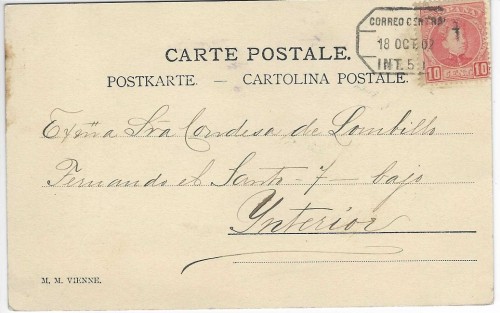 CORREO CENTRAL
18 OCT 02
INT. 5
ESPAÑA
10 10
CARTE POSTALE.
POSTKARTE. — CARTOLINA POSTALE.
Exma Sra Condesa de Lombillo
Fernando el Santo - 7 - bajo
Ynterior
M. M. VIENNE.